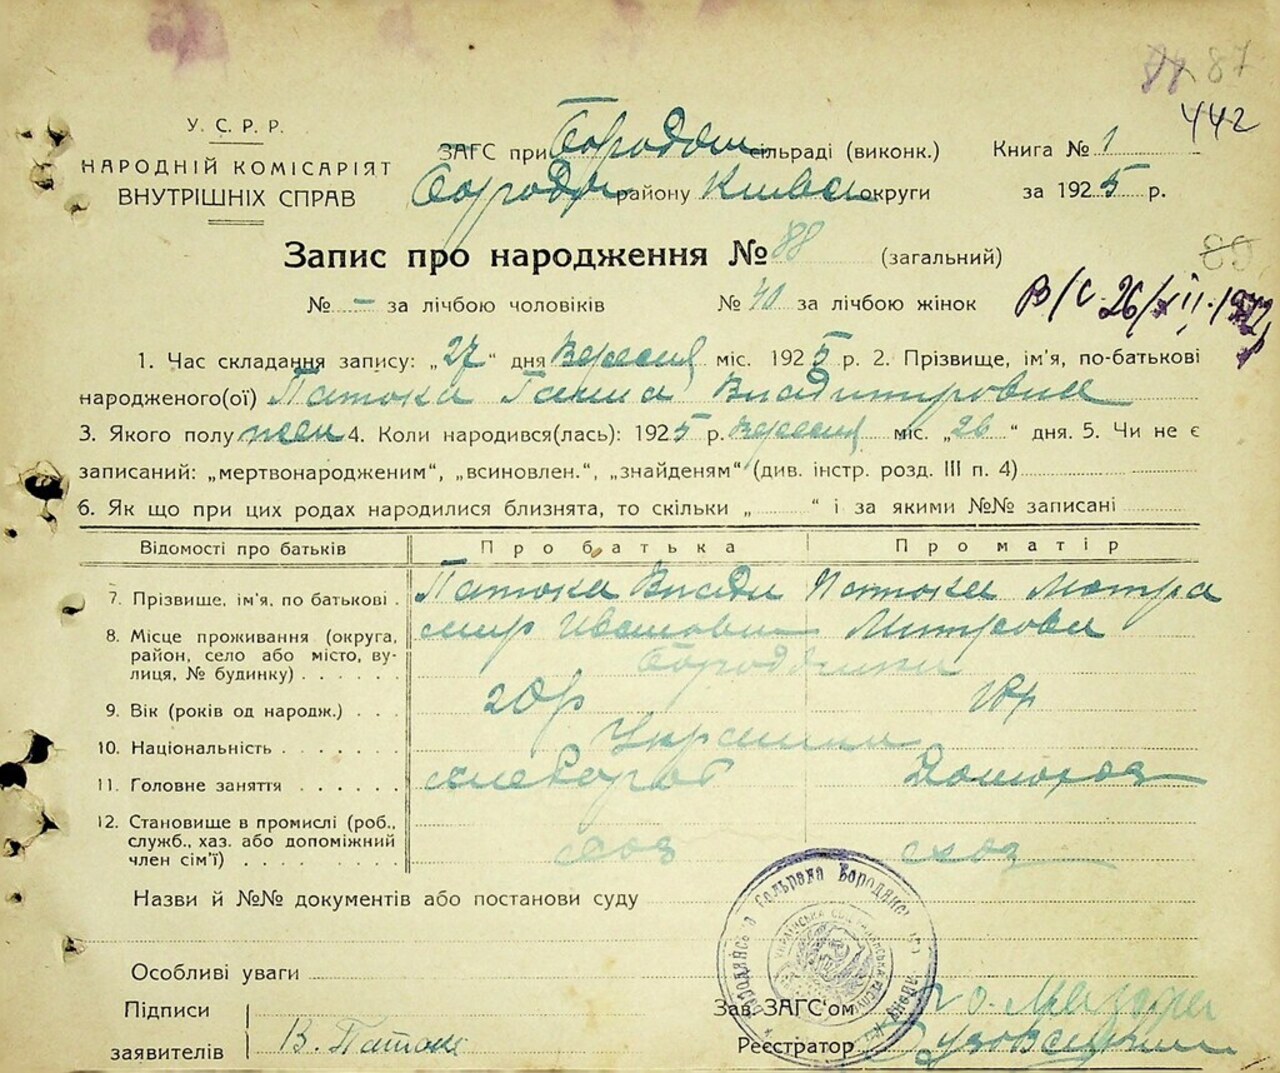 87
442
У. С. Р. Р.
НАРОДНІЙ КОМІСАРІЯТ
ВНУТРІШНІХ СПРАВ
ЗАГС при Бородян сільраді (виконк.) Книга № 1
Бородян району Київськ округи за 1925 р.
Запис про народження № 88 (загальний)
89
№ — за лічбою чоловіків № 40 за лічбою жінок
в/с 26/XII-1972
1. Час складання запису: „27“ дня Вересня міс. 1925 р. 2. Прізвище, ім'я, по-батькові
народженого(ої) Патока Ганна Владимировна
3. Якого полу жен 4. Коли народився(лась): 1925 р. Вересня міс. „26“ дня. 5. Чи не є
записаний: „мертвонародженим“, „всиновлен.“, „знайденям“ (див. інстр. розд. III п. 4)
6. Як що при цих родах народилися близнята, то скільки „ “ і за якими №№ записані
Відомості про батьків Про батька Про матір
7. Прізвище, ім'я, по батькові Патока Влади Патока Мотра
мир Иванович Митрова
8. Місце проживання (округа,
район, село або місто, ву-
лиця, № будинку)
9. Вік (років од народж.) 20р
10. Національність
11. Головне заняття хлебороб
12. Становище в промислі (роб.,
служб., хаз. або допоміжний
член сім'ї)
Назви й №№ документів або постанови суду
Особливі уваги
Підписи
заявителів В. Паток
Зав. ЗАГС'ом
Реєстратор